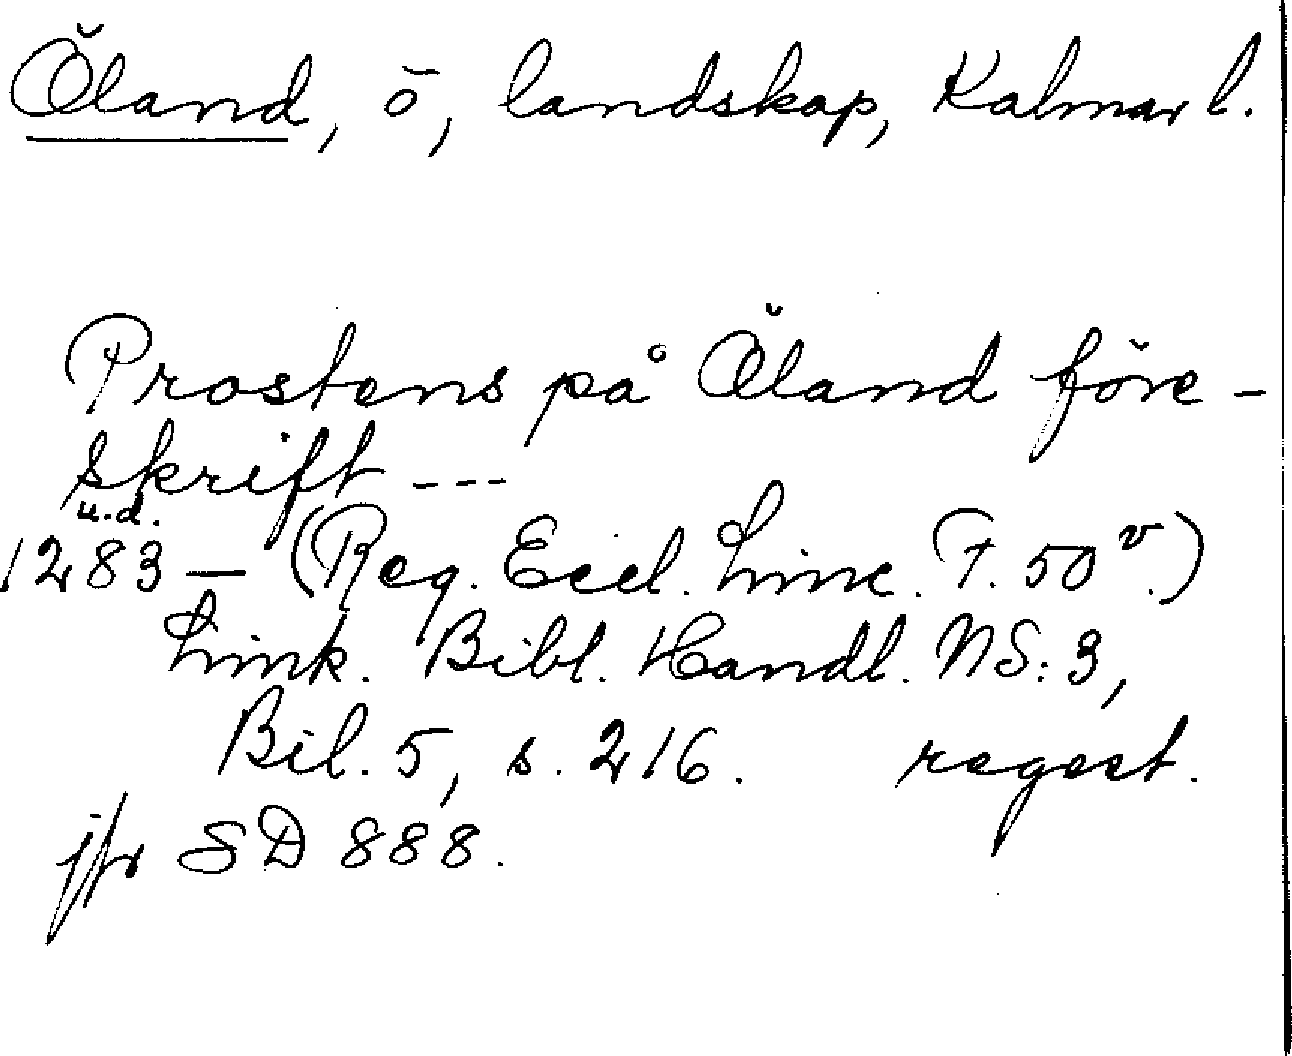 Öland, ö, landskap, Kalmar l.
Prostens på Öland före-
skrift ---
u.d.
1283 — (Reg. Eccl. Linc. F. 50v.)
Link. Bibl. Handl. NS: 3,
Bil. 5, s. 216. regest.
jfr SD 888.